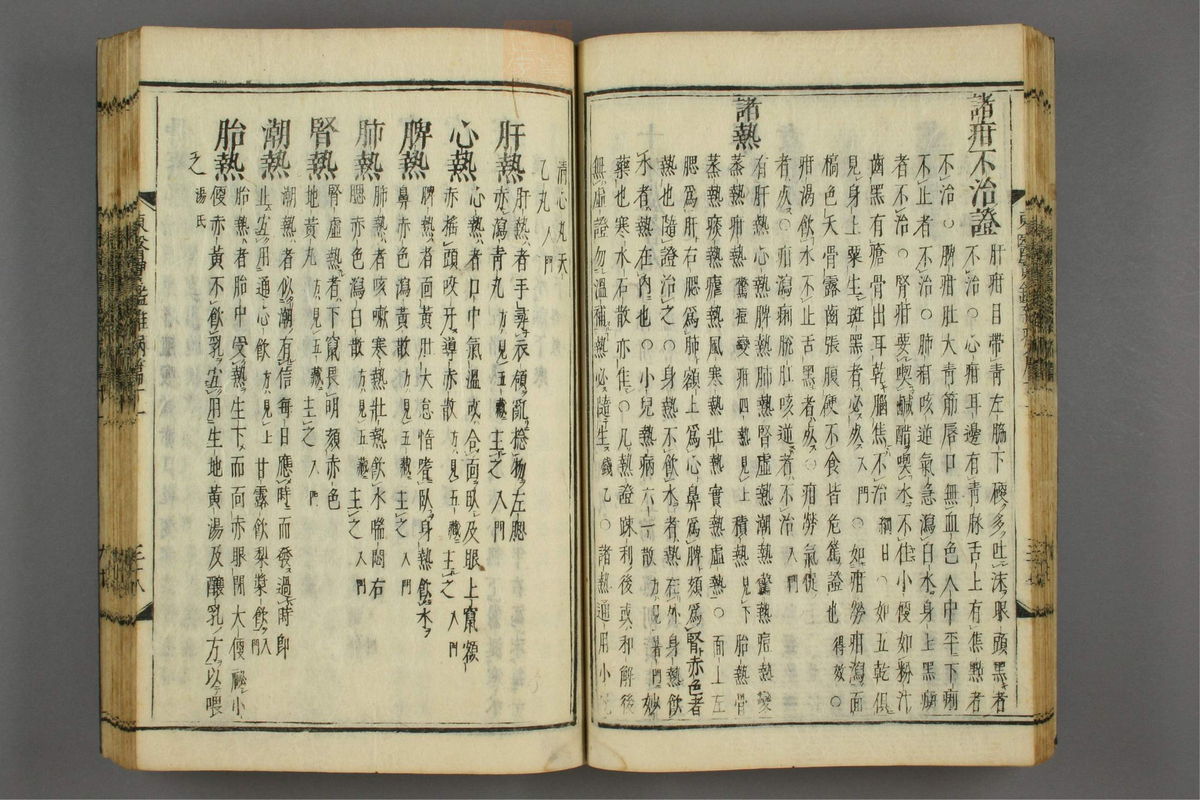 諸疳不治證 肝疳目帶青左脇下硬多吐沫眼頭黑者
不治○心疳耳邊有青脉舌上有焦點者
不治○脾疳肚大青筋唇口無血色人中平下痢
不止者不治○肺疳咳逆氣急瀉白水身上黑癍
者不治○腎疳要喫鹹醋喫水不住小便如粉汁
齒黑有瘡骨出耳乾腦焦不治 綱目○如五乾俱
見身上粟生斑黑者必死 入門○如疳勞疳瀉面
槁色夭骨露齒張腹硬不食皆危篤證也 得效○
疳渴飮水不止舌黑者死○疳勞氣促
者死○疳瀉痢脫肛咳逆者不治 入門
諸熱 有肝熱心熱脾熱肺熱腎虛熱潮熱驚熱瘡熱變
蒸熱疳熱 驚痘變疳四熱見上 積熱 見下 胎熱骨
蒸熱痰熱瘧熱風寒熱壯熱實熱虛熱○面上左
腮爲肝右腮爲肺額上爲心鼻爲脾頦爲腎赤色者
熱也隨證治之○小兒熱不飮水者熱在外身熱飮
水者熱在內也○小兒熱病六一散 方見暑門 妙
藥也寒水石散亦佳○凡熱證踈利後或和解後
無虛證勿溫補熱必隨生 錢乙○諸熱通用小
淸心丸天
乙丸 入門
肝熱 肝熱者手尋衣領亂捻物左腮
赤瀉靑丸 方見五藏 主之 入門
心熱 心熱者口中氣溫或合面臥及眼上竄額
赤搖頭咬牙導赤散 方見五藏 主之 入門
脾熱 脾熱者面黃肚大怠惰嗜臥身熱飮水
鼻赤色瀉黃散 方見五藏 主之 入門
肺熱 肺熱者咳嗽寒熱壯熱飮水喘悶右
腮赤色瀉白散 方見五藏 主之 入門
腎熱 腎虛熱者下竄畏明頦赤色
地黃丸 方見五藏 主之 入門
潮熱 潮熱者似潮有信每日應時而發過時卽
止宜用通心飮 方見上 甘露飮梨漿飮 入門
胎熱 胎熱者胎中受熱生下而面赤眼閉大便秘小
便赤黃不飮乳宜用生地黃湯及釀乳方以喂
之 湯氏